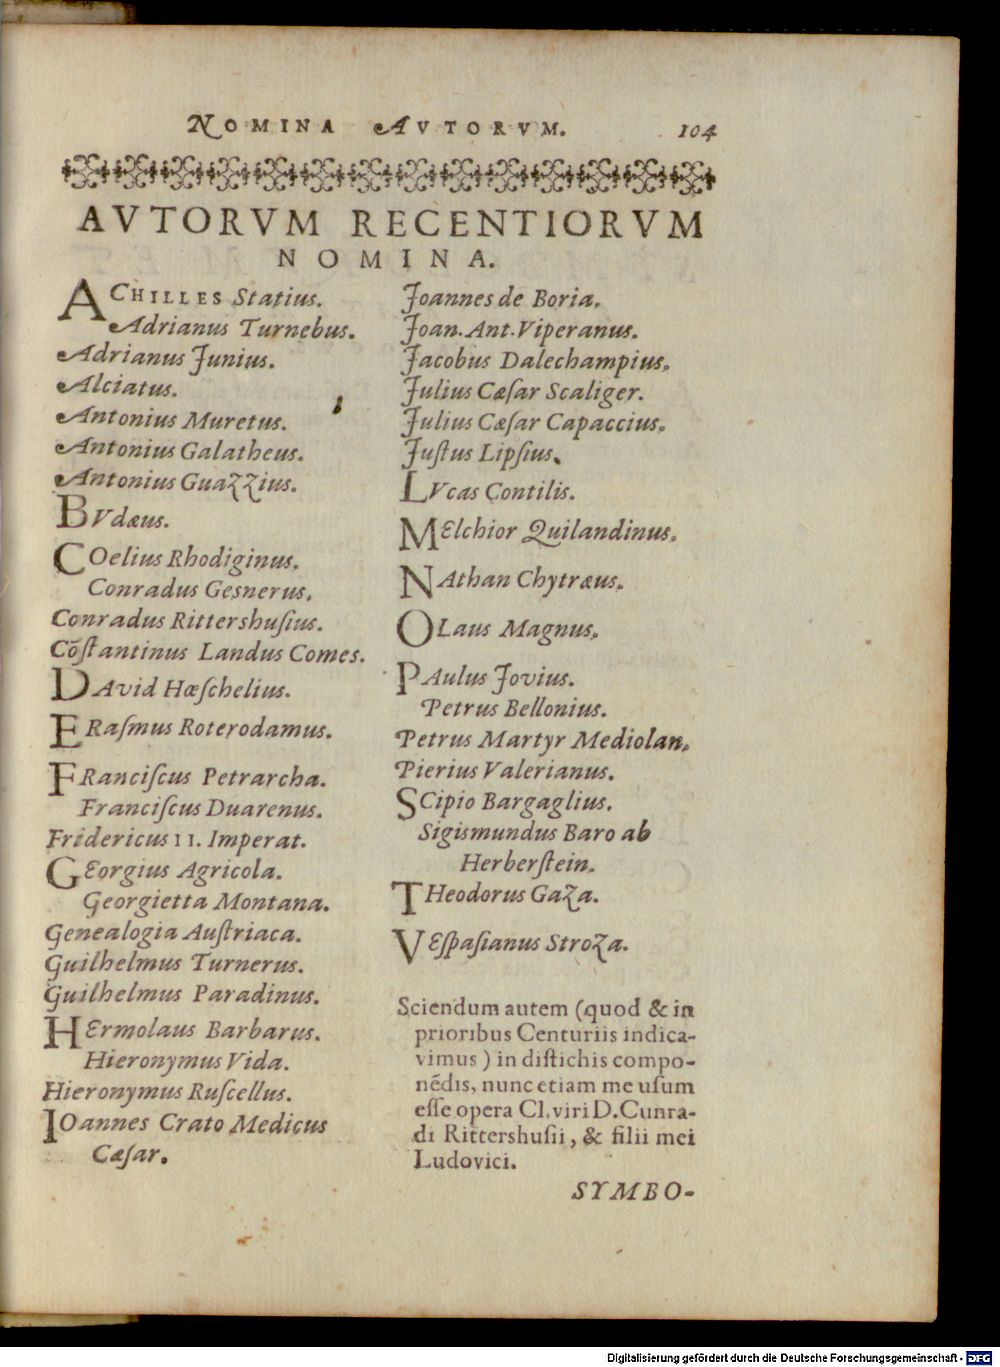 NOMINA AVTORVM. 104
AVTORVM RECENTIORVM
NOMINA.
ACHILLES Statius.
Adrianus Turnebus.
Adrianus Junius.
Alciatus.
Antonius Muretus.
Antonius Galatheus.
Antonius Guazzius.
BVdæus.
COelius Rhodiginus.
Conradus Gesnerus.
Conradus Rittershuſius.
Cõſtantinus Landus Comes.
DAvid Hæſchelius.
ERaſmus Roterodamus.
FRanciſcus Petrarcha.
Franciſcus Duarenus.
Fridericus II. Imperat.
GEorgius Agricola.
Georgietta Montana.
Genealogia Auſtriaca.
Guilhelmus Turnerus.
Guilhelmus Paradinus.
HErmolaus Barbarus.
Hieronymus Vida.
Hieronymus Ruſcellus.
IOannes Crato Medicus
Cæſar.
Joannes de Boria.
Joan. Ant. Viperanus.
Jacobus Dalechampius.
Julius Cæſar Scaliger.
Julius Cæſar Capaccius.
Juſtus Lipſius.
LVcas Contilis.
MElchior Quilandinus.
NAthan Chytræus.
OLaus Magnus.
PAulus Jovius.
Petrus Bellonius.
Petrus Martyr Mediolan.
Pierius Valerianus.
SCipio Bargaglius.
Sigismundus Baro ab
Herberſtein.
THeodorus Gaza.
VEſpaſianus Stroza.
Sciendum autem (quod & in
prioribus Centuriis indica-
vimus) in diſtichis compo-
nẽdis, nunc etiam me uſum
eſſe opera Cl. viri D. Cunra-
di Rittershuſii, & filii mei
Ludovici.
SYMBO-
Digitalisierung gefördert durch die Deutsche Forschungsgemeinschaft - DFG